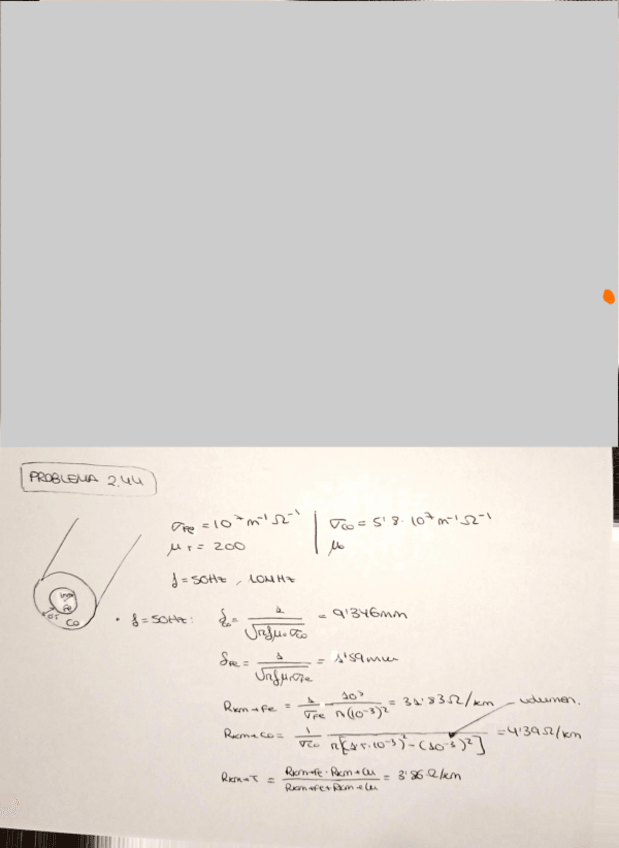 PROBLEMA 2.44
σFe = 10⁷ m⁻¹ Ω⁻¹ | σCo = 5'8 · 10⁷ m⁻¹ Ω⁻¹
μr = 200 | μ₀
f = 50Hz, 10MHz
1mm
Fe
Co
• f = 50Hz: δCo = 1 / √(π f μ₀ σCo) = 9'346mm
δFe = 1 / √(π f μ σFe) = 1'59mm
Rkm→Fe = 1/σFe · 10³ / π(10⁻³)² = 31'83 Ω/km
volumen.
Rkm→Co = 1/σCo · 1 / π[(1'5·10⁻³)² - (10⁻³)²] = 4'39 Ω/km
Rkm→T = Rkm→Fe · Rkm→Cu / Rkm→Fe + Rkm→Cu = 3'86 Ω/km